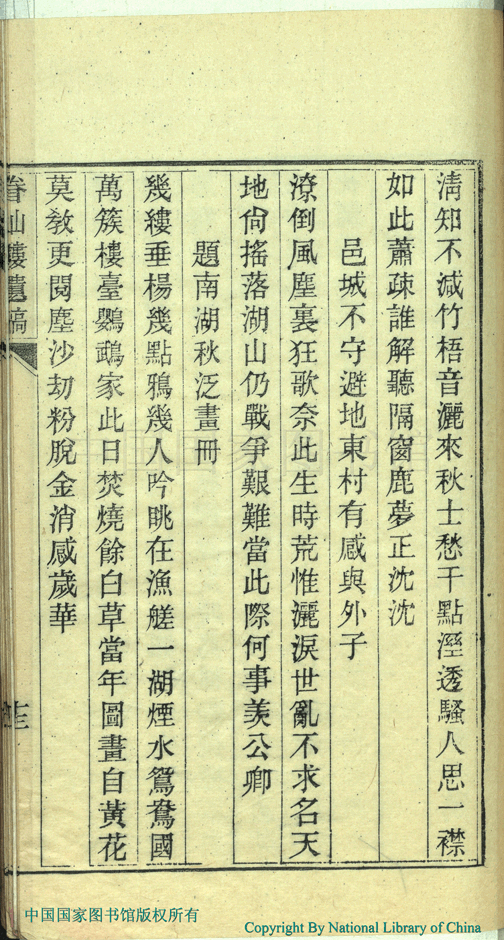 淸知不減竹梧音灑來秋士愁千點溼透騷人思一襟
如此蕭疎誰解聽隔窗鹿夢正沈沈
邑城不守避地東村有感與外子
潦倒風塵裏狂歌奈此生時荒惟灑淚世亂不求名天
地尙搖落湖山仍戰爭艱難當此際何事羨公卿
題南湖秋泛畫冊
幾縷垂楊幾點鴉幾人吟眺在漁艖一湖煙水鴛鴦國
萬簇樓臺鸚鵡家此日焚燒餘白草當年圖畫自黃花
莫敎更閱塵沙刧粉脫金消感歲華
樓遺稿
中国国家图书馆版权所有
Copyright By National Library of China